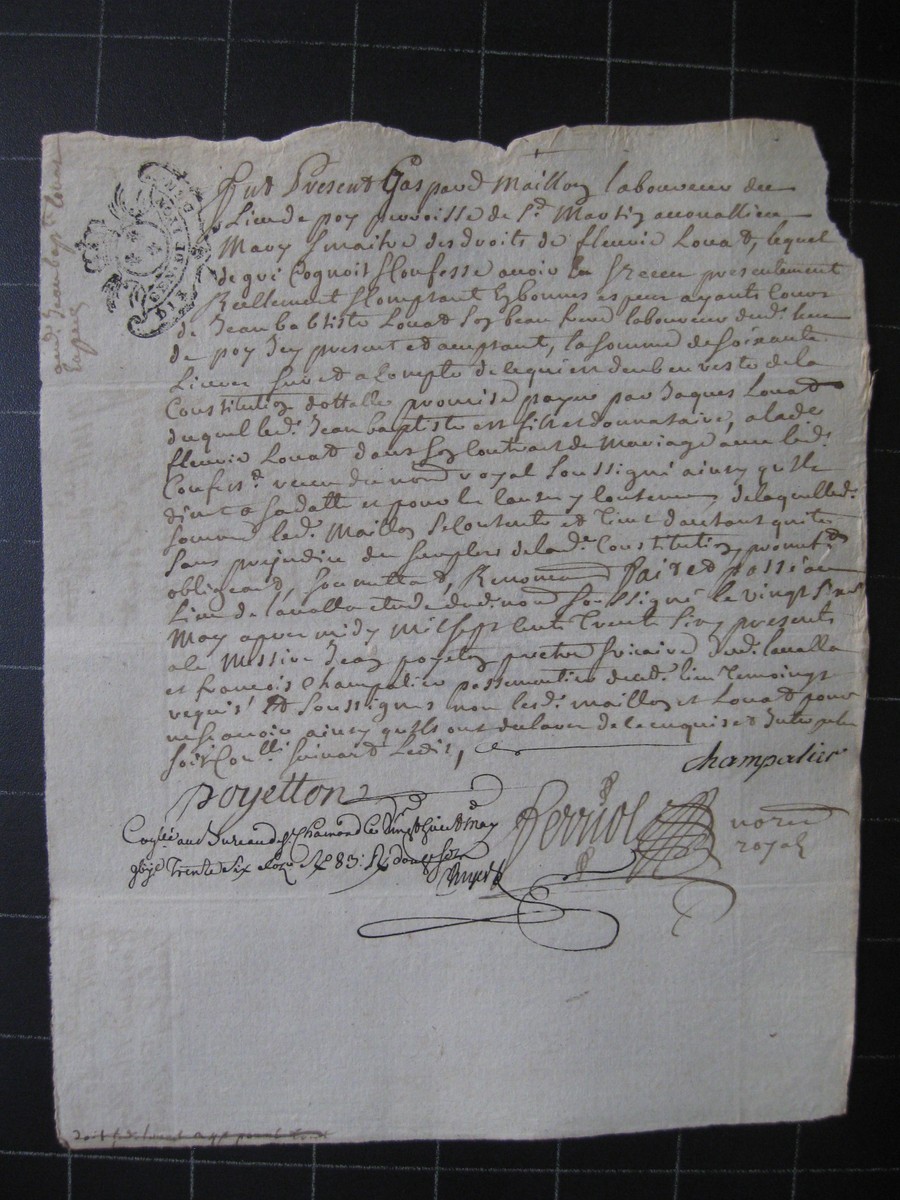 Fut Present Gaspard Maillon laboureur du
Lieu de poy parroisse de St. Martin acouallieu
Mary & maitre des droits de fleurie Louat, lequel
de gré Cognoit & Confesse auoir eu & receu presentement
Reellement & Comptant en bonnes especes ayants Cours
de Jean baptiste Louat son beau frere laboureur dud. lieu
de poy Icy present et acceptant, la somme de soixante
Liures sur et a Compte de ce qui est deub en reste de la
Constitution dottalle promise payer par Jaques Louat
duquel led. Jean baptiste est fils et donnataire, a lade
fleurie Louat dans son Contract de Mariage auec led.
Confess. receu du no.re royal soussigné ainsy qu'ils
dient a sa datte et pour les causes y contenues, de laquelle
somme led. Maillon se Contente et tient dautant quitte
sans prejudice du surplus de lad. Constitution, promett.
obligeant, soumettant, Renonceant Fait et passé au
Lieu de laualla etude dud. no.re soussigné le vingt
May apres midy Mil sept cents Trente Six, presents
a ce Messire Jean poyeton pretre vicaire dud. laualla
et françois Champalier passementier dud. lieu temoings
requis et soussignés non les d. maillon et Louat pour
ne scauoir ainsy qu'ils ont declaré de ce enquis et
soit Con.llé suiuant Ledit,
champalier
poyetton
ferriol
no.re
royal
Con.llé au bureau de St. Chamond le vingt May
trente six
aud. Jean bapt. Louat